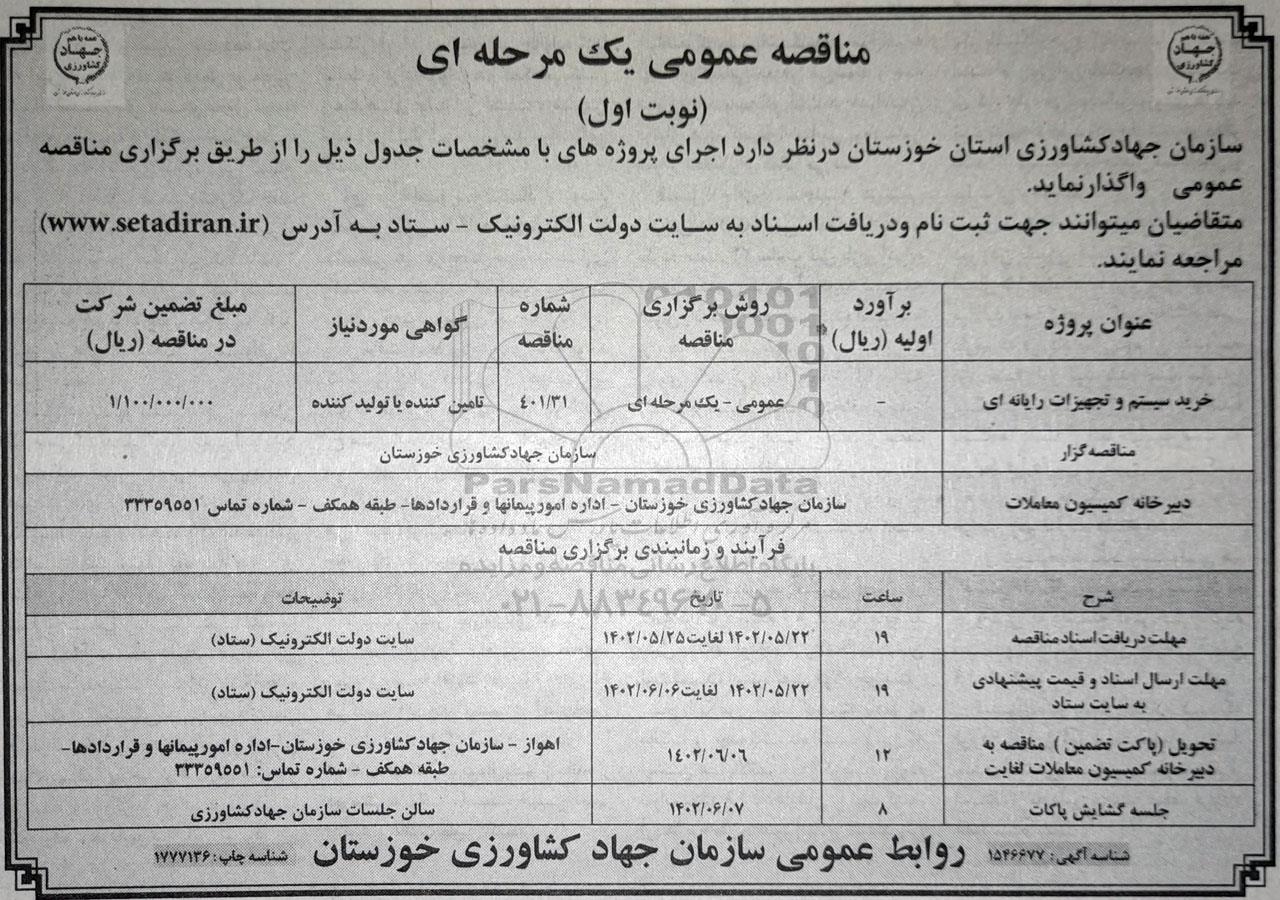 همه با هم
جهاد
کشاورزی
همه با هم
جهاد
کشاورزی
مناقصه عمومی یک مرحله ای
(نوبت اول)
سازمان جهادکشاورزی استان خوزستان درنظر دارد اجرای پروژه های با مشخصات جدول ذیل را از طریق برگزاری مناقصه
عمومی واگذارنماید.
متقاضیان میتوانند جهت ثبت نام ودریافت اسناد به سایت دولت الکترونیک - ستاد به آدرس (www.setadiran.ir)
مراجعه نمایند.
عنوان پروژه
برآورد
اولیه (ریال)
روش برگزاری
مناقصه
شماره
مناقصه
گواهی موردنیاز
مبلغ تضمین شرکت
در مناقصه (ریال)
خرید سیستم و تجهیزات رایانه ای
-
عمومی - یک مرحله ای
۴۰۱/۳۱
تامین کننده یا تولید کننده
۱/۱۰۰/۰۰۰/۰۰۰
مناقصه گزار
سازمان جهادکشاورزی خوزستان
دبیرخانه کمیسیون معاملات
سازمان جهادکشاورزی خوزستان - اداره امورپیمانها و قراردادها- طبقه همکف - شماره تماس ۳۳۳۵۹۵۵۱
فرآیند و زمانبندی برگزاری مناقصه
شرح
ساعت
تاریخ
توضیحات
مهلت دریافت اسناد مناقصه
۱۹
۱۴۰۲/۰۵/۲۲ لغایت ۱۴۰۲/۰۵/۲۵
سایت دولت الکترونیک (ستاد)
مهلت ارسال اسناد و قیمت پیشنهادی
به سایت ستاد
۱۹
۱۴۰۲/۰۵/۲۲ لغایت ۱۴۰۲/۰۶/۰۶
سایت دولت الکترونیک (ستاد)
تحویل (پاکت تضمین ) مناقصه به
دبیرخانه کمیسیون معاملات لغایت
۱۲
۱۴۰۲/۰۶/۰۶
اهواز - سازمان جهادکشاورزی خوزستان-اداره امورپیمانها و قراردادها-
طبقه همکف - شماره تماس: ۳۳۳۵۹۵۵۱
جلسه گشایش پاکات
۸
۱۴۰۲/۰۶/۰۷
سالن جلسات سازمان جهادکشاورزی
شناسه آگهی: ۱۵۴۶۶۷۷
روابط عمومی سازمان جهاد کشاورزی خوزستان
شناسه چاپ: ۱۷۷۷۱۳۶
ParsNamadData
پایگاه اطلاع رسانی مناقصه و مزایده